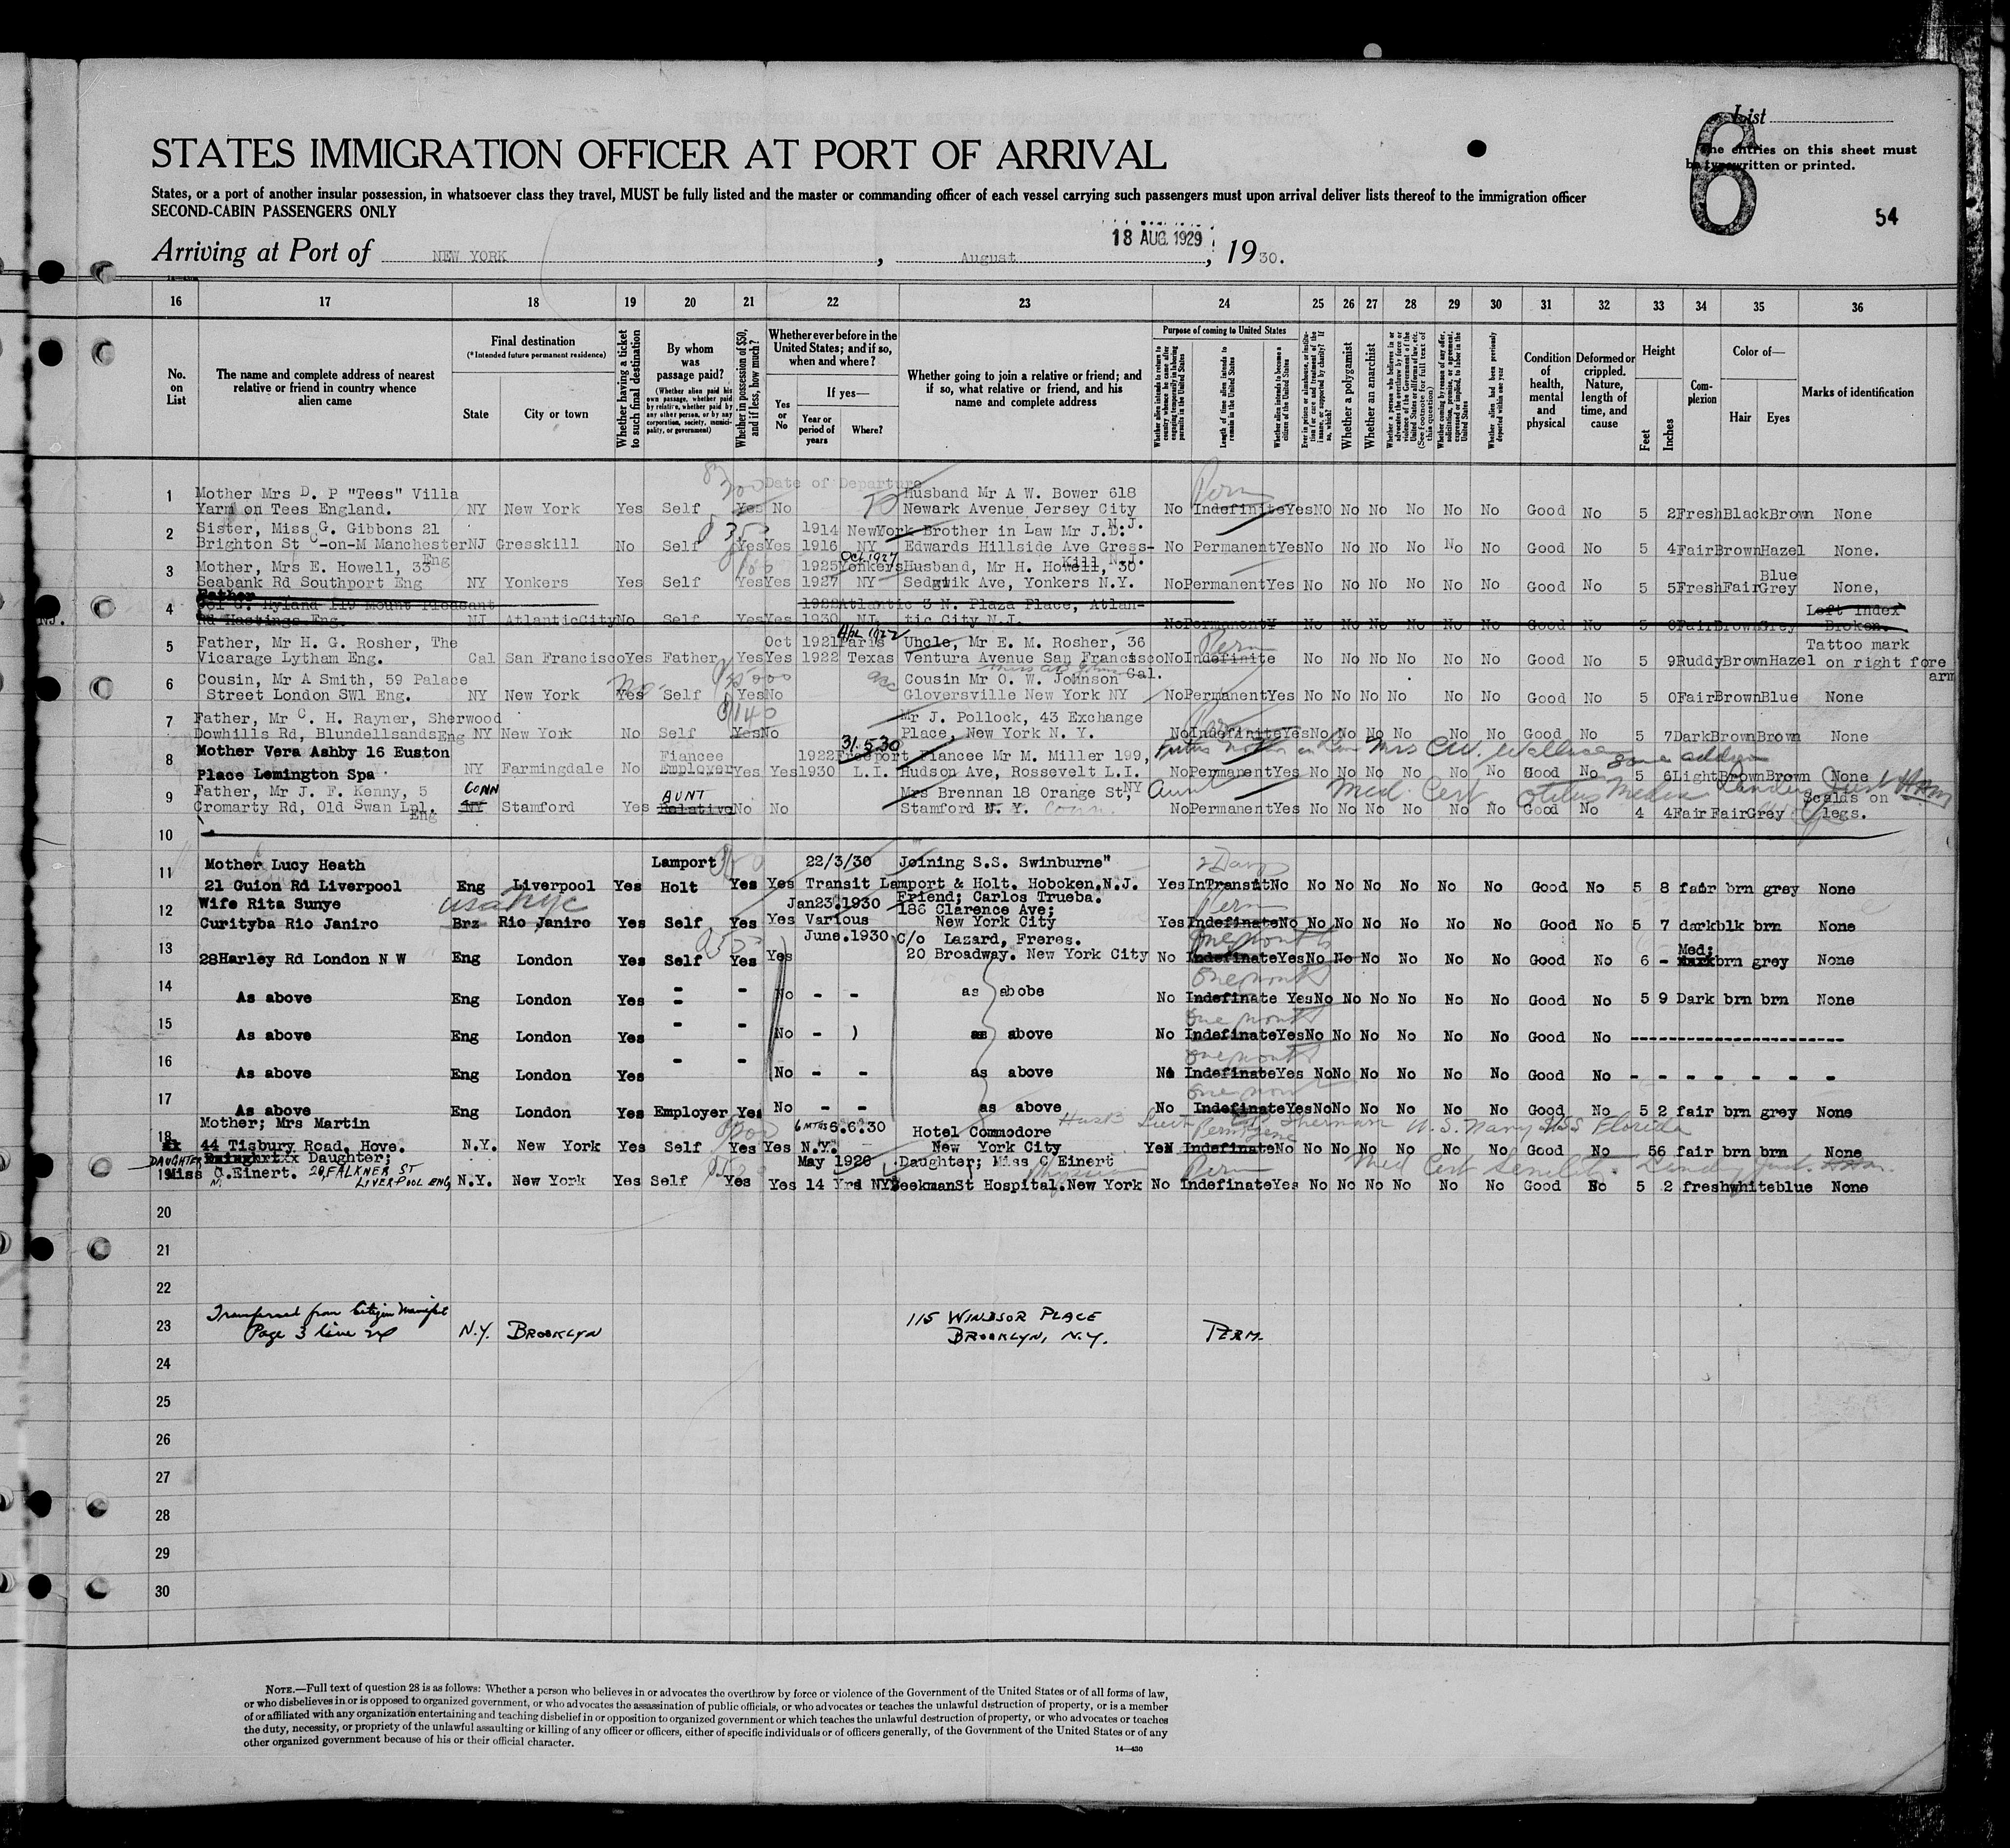 List
The entries on this sheet must
be typewritten or printed.
6
54
STATES IMMIGRATION OFFICER AT PORT OF ARRIVAL
States, or a port of another insular possession, in whatsoever class they travel, MUST be fully listed and the master or commanding officer of each vessel carrying such passengers must upon arrival deliver lists thereof to the immigration officer
SECOND-CABIN PASSENGERS ONLY
18 AUG. 1929
Arriving at Port of NEW YORK, August, 1930.
16 17 18 19 20 21 22 23 24 25 26 27 28 29 30 31 32 33 34 35 36
No. on List
The name and complete address of nearest relative or friend in country whence alien came
Final destination
(*Intended future permanent residence)
State
City or town
Whether having a ticket to such final destination
By whom was passage paid?
(Whether alien paid his own passage, whether paid by relative, whether paid by any other person, or by any corporation, society, municipality, or government)
Whether in possession of $50, and if less, how much?
Whether ever before in the United States; and if so, when and where?
Yes or No
If yes—
Year or period of years
Where?
Whether going to join a relative or friend; and if so, what relative or friend, and his name and complete address
Purpose of coming to United States
Whether alien intends to return to country whence he came after engaging temporarily in laboring pursuits in the United States
Length of time alien intends to remain in the United States
Whether alien intends to become a citizen of the United States
Ever in prison or almshouse, or institution for care and treatment of the insane, or supported by charity? If so, which?
Whether a polygamist
Whether an anarchist
Whether a person who believes in or advocates the overthrow by force or violence of the Government of the United States or all forms of law, etc. (See footnote for full text of this question)
Whether coming by reason of any offer, solicitation, promise, or agreement, expressed or implied, to labor in the United States
Whether alien had been previously deported within one year
Condition of health, mental and physical
Deformed or crippled. Nature, length of time, and cause
Height
Feet
Inches
Complexion
Color of—
Hair
Eyes
Marks of identification
Date of Departure
1 Mother Mrs D. P "Tees" Villa Husband Mr A W. Bower 618 Perm
Yarm on Tees England. NY New York Yes Self Yes No Newark Avenue Jersey City No Indefinite Yes NO No No No No No Good No 5 2 Fresh Black Brown None
N.J.
2 Sister, Miss G. Gibbons 21 1914 New York Brother in Law Mr J.D.
Brighton St C-on-M Manchester NJ Gresskill No Self Yes Yes 1916 NY Edwards Hillside Ave Gress- No Permanent Yes No No No No No No Good No 5 4 Fair Brown Hazel None.
Eng Oct 1927 Kill, N.J.
3 Mother, Mrs E. Howell, 33 1925 Yonkers Husband, Mr H. Howell, 30 Blue
Seabank Rd Southport Eng NY Yonkers Yes Self Yes Yes 1927 NY Sedgwik Ave, Yonkers N.Y. No Permanent Yes No No No No No No Good No 5 5 Fresh Fair Grey None,
Father
4 Hyland 119 Mount Pleasant 1922 Atlantic 3 N. Plaza Place, Atlan- Left index
NJ. Rd Hastings Eng. NJ Atlantic City No Self Yes Yes 1930 NJ. tic City N.J. No Permanent No No No No No No Good No Fair Brown Grey Broken.
5 Father, Mr H. G. Rosher, The Oct 1921 Paris Uncle, Mr E. M. Rosher, 36 Perm Tattoo mark
Vicarage Lytham Eng. Cal San Francisco Yes Father Yes Yes 1922 Texas Ventura Avenue San Francisco No Indefinite No No No No No No Good No 5 9 Ruddy Brown Hazel on right fore arm
Cal.
6 Cousin, Mr A Smith, 59 Palace Cousin Mr O. W. Johnson
Street London SW1 Eng. NY New York Yes Self Yes No Gloversville New York NY No Permanent Yes No No No No No No Good No 5 0 Fair Brown Blue None
140
7 Father, Mr C. H. Rayner, Sherwood Mr J. Pollock, 43 Exchange
Dowhills Rd, Blundellsands Eng NY New York No Self Yes No Place, New York N. Y. No Indefinite Yes No No No No No No Good No 5 7 Dark Brown Brown None
31.5.30
8 Mother Vera Ashby 16 Euston Fiancee 1922 Freeport Fiancee Mr M. Miller 199, Mrs C.W. Wallace same address
Place Lemington Spa NY Farmingdale No Employer Yes Yes 1930 L.I. Hudson Ave, Rossevelt L.I. No Permanent Yes No No No No No No Good No 5 6 Light Brown Brown None
9 Father, Mr J. F. Kenny, 5 CONN AUNT Mrs Brennan 18 Orange St, NY Aunt Med. Cert Otitis Media Scalds on
Cromarty Rd, Old Swan Lpl. Eng NY Stamford Yes Relative No No Stamford N. Y. Conn No Permanent Yes No No No No No No Good No 4 4 Fair Fair Grey legs.
10
11 Mother Lucy Heath Lamport 22/3/30 Joining S.S. Swinburne" 2 Days
21 Guion Rd Liverpool Eng Liverpool Yes Holt Yes Yes Transit Lamport & Holt. Hoboken.N.J. Yes InTransit No No No No No No No Good No 5 8 fair brn grey None
12 Wife Rita Sunye USA NYC Jan23.1930 Friend; Carlos Trueba. Perm
186 Clarence Ave;
Curityba Rio Janiro Brz Rio Janiro Yes Self Yes Yes Various New York City Yes Indefinate No No No No No No No Good No 5 7 dark blk brn None
13 June.1930 C/o Lazard, Freres. One month Med;
28Harley Rd London N W Eng London Yes Self Yes Yes 20 Broadway. New York City No Indefinate Yes No No No No No No Good No 6 - dark brn grey None
14 One month
As above Eng London Yes - - No - - as abobe No Indefinate Yes No No No No No No Good No 5 9 Dark brn brn None
15 One month
As above Eng London Yes - - No - ) as above No Indefinate Yes No No No No No No Good No ----------------------
16 One month
As above Eng London Yes - - No - - as above No Indefinate Yes No No No No No No Good No - - - - - - -
17 One month
As above Eng London Yes Employer Yes No - - as above No Indefinate Yes No No No No No No Good No 5 2 fair brn grey None
18 Mother; Mrs Martin 6 MTHS 6.6.30 Hotel Commodore Husb Lieut Sherman U.S. Navy USS Florida
44 Tisbury Road, Hove. N.Y. New York Yes Self Yes Yes N.Y. New York City Yes Indefinate No No No No No No No Good No 5 6 fair brn brn None
19 DAUGHTER Daughter; May 1926 Daughter; Miss C Einert Perm Med Cert Senility.
Miss C.Einert. 20, FALKNER ST LIVERPOOL ENG N.Y. New York Yes Self Yes Yes 14 Yrs NY BeekmanSt Hospital.New York No Indefinate Yes No No No No No No Good No 5 2 fresh white blue None
20
21
22
23 Transferred from Citizen Manifest 115 WINDSOR PLACE
Page 3 line 24 N.Y. BROOKLYN BROOKLYN, N.Y. PERM.
24
25
26
27
28
29
30
NOTE.—Full text of question 28 is as follows: Whether a person who believes in or advocates the overthrow by force or violence of the Government of the United States or of all forms of law,
or who disbelieves in or is opposed to organized government, or who advocates the assassination of public officials, or who advocates or teaches the unlawful destruction of property, or is a member
of or affiliated with any organization entertaining and teaching disbelief in or opposition to organized government or which teaches the unlawful destruction of property, or who advocates or teaches
the duty, necessity, or propriety of the unlawful assaulting or killing of any officer or officers, either of specific individuals or of officers generally, of the Government of the United States or of any
other organized government because of his or their official character.
14—430